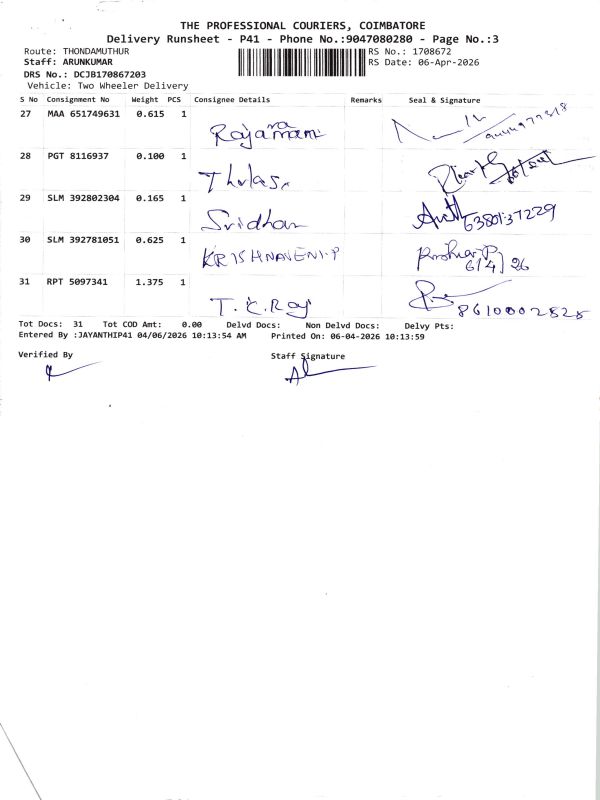 THE PROFESSIONAL COURIERS, COIMBATORE
Delivery Runsheet - P41 - Phone No.:9047080280 - Page No.:3
Route: THONDAMUTHUR RS No.: 1708672
Staff: ARUNKUMAR RS Date: 06-Apr-2026
DRS No.: DCJB170867203
Vehicle: Two Wheeler Delivery
S No Consignment No Weight PCS Consignee Details Remarks Seal & Signature
27 MAA 651749631 0.615 1
Rajamani
28 PGT 8116937 0.100 1
Thulasi
29 SLM 392802304 0.165 1
Sridhar 6380137229
30 SLM 392781051 0.625 1
KRISHNAVENI.P
6/4/26
31 RPT 5097341 1.375 1
T.K.Raj 8610002828
Tot Docs: 31 Tot COD Amt: 0.00 Delvd Docs: Non Delvd Docs: Delvy Pts:
Entered By :JAYANTHIP41 04/06/2026 10:13:54 AM Printed On: 06-04-2026 10:13:59
Verified By Staff Signature